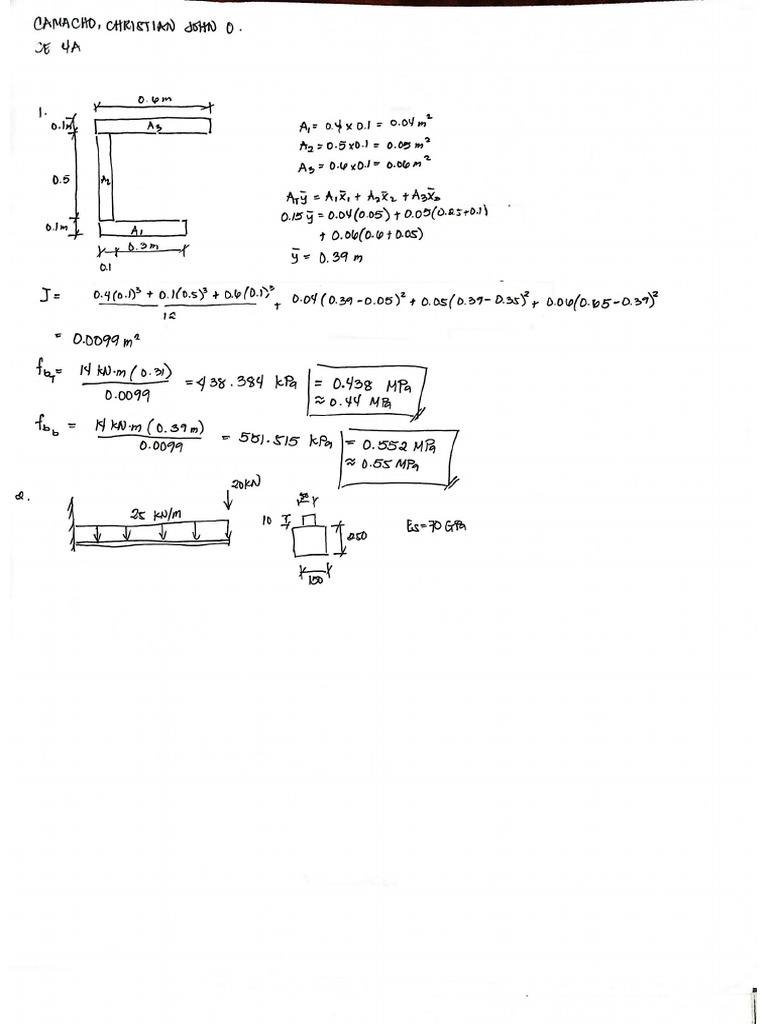 CAMACHO, CHRISTIAN JOHN O.
CE 4A
1.
0.6 m
0.1m
A3
0.5
A2
0.1m
A1
0.3m
0.1
A₁ = 0.4 x 0.1 = 0.04 m²
A₂ = 0.5 x 0.1 = 0.05 m²
A₃ = 0.6 x 0.1 = 0.06 m²
A_T ȳ = A₁x̄₁ + A₂x̄₂ + A₃x̄₃
0.15 ȳ = 0.04(0.05) + 0.05(0.25+0.1)
+ 0.06(0.6+0.05)
ȳ = 0.39 m
I = (0.4(0.1)³ + 0.1(0.5)³ + 0.6(0.1)³)/12 + 0.04(0.39-0.05)² + 0.05(0.39-0.35)² + 0.06(0.65-0.39)²
= 0.0099 m²
f_bT = 14 kN·m (0.31) / 0.0099 = 438.384 kPa = 0.438 MPa
≈ 0.44 MPa
f_bb = 14 kN·m (0.39m) / 0.0099 = 551.515 kPa = 0.552 MPa
≈ 0.55 MPa
2.
20KN
25 KN/m
10
250
150
Es = 70 GPa